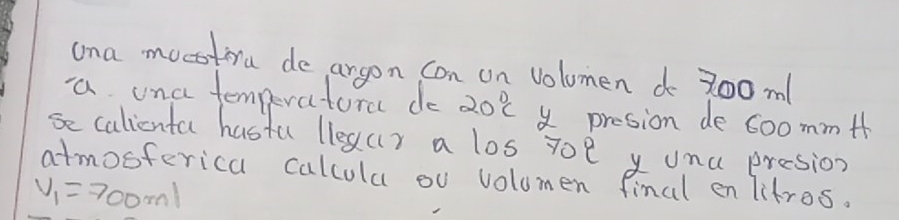 una muestra de argon con un volumen de 700 ml
a una temperatura de 20℃ y presion de 600 mm H
se calienta hasta llegar a los 70℃ y una presion
atmosferica calcula su volumen final en litros.
V₁=700ml